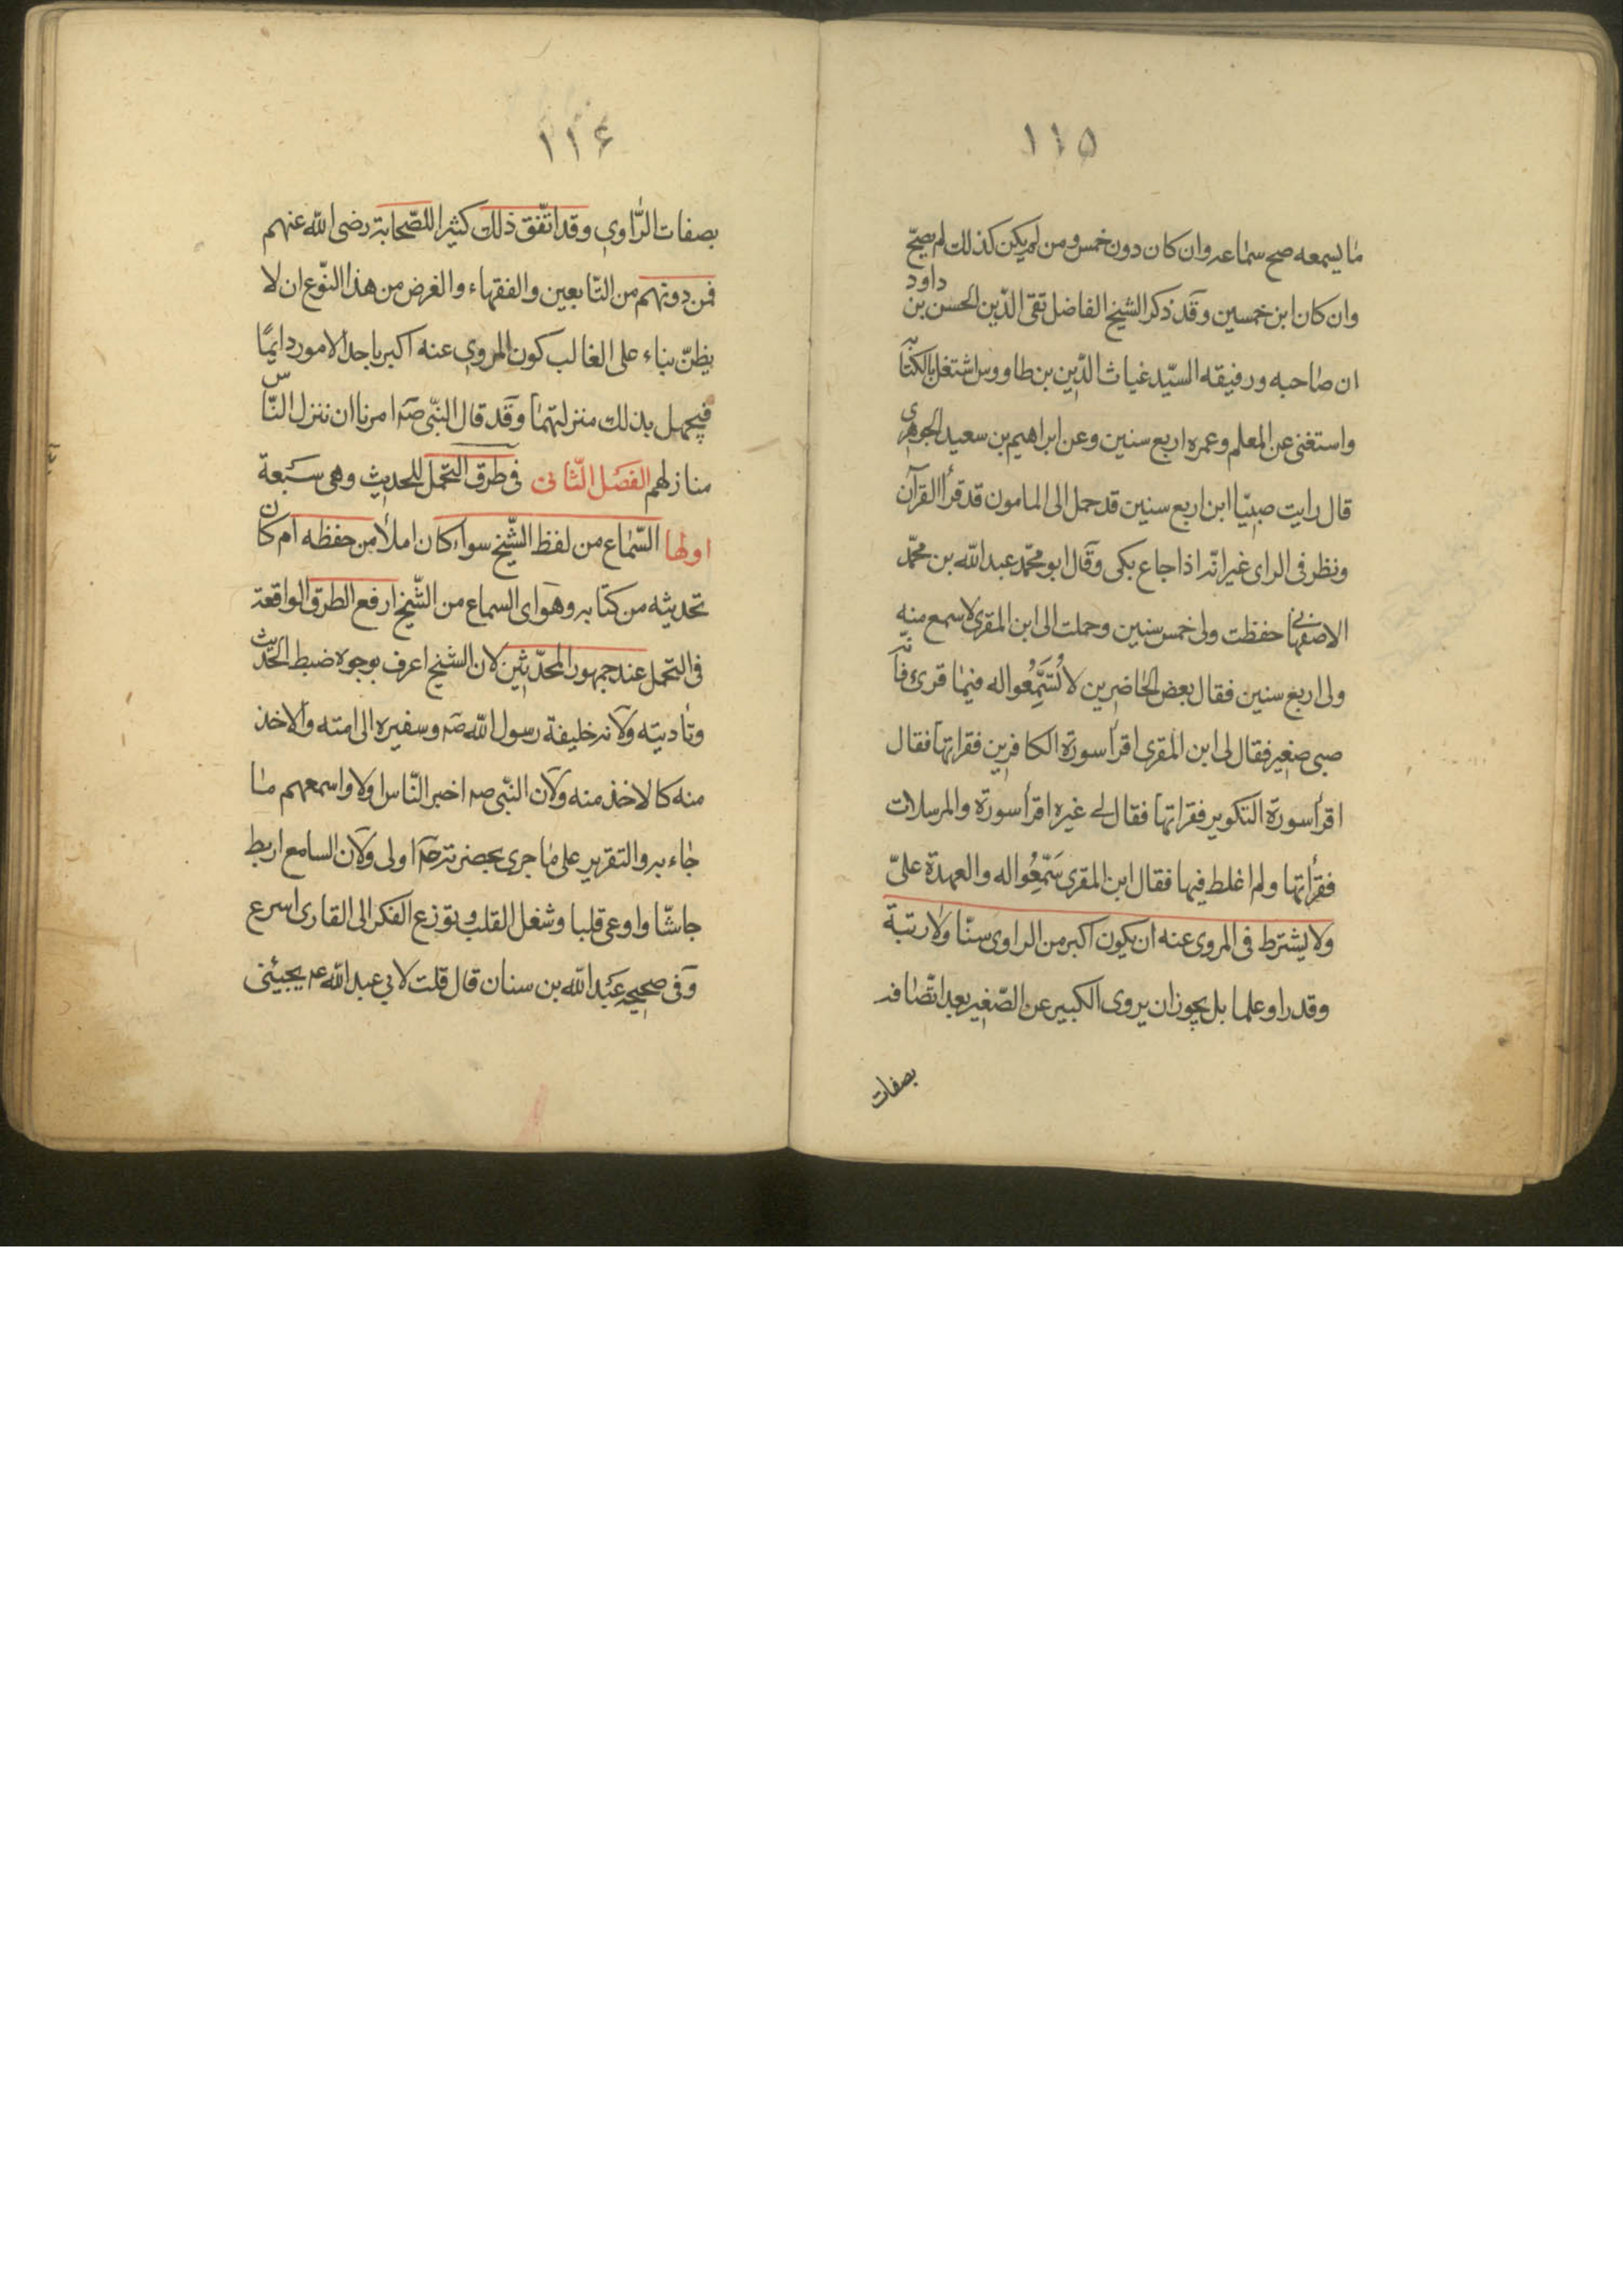 ١١۵
ما يسمعه صح سماعه وان كان دون خمس ومن لم يكن كذلك لم يصحّ
وان كان ابن خمسين وقد ذكر الشيخ الفاضل تقى الدّين الحسن بن داود
ان صاحبه ورفيقه السيّد غياث الدّين بن طاووس اشتغل بالكتابة
واستغنى عن المعلم وعمره اربع سنين وعن ابراهيم بن سعيد الجوهرى
قال رايت صبيّا ابن اربع سنين قد حمل الى المامون قد قرأ القرآن
ونظر فى الراى غير انّه اذا جاع بكى وقال ابو محمّد عبد اللّه بن محمّد
الاصفهانى حفظت ولى خمس سنين وحملت الى ابن المقرى لاسمع منه
ولى اربع سنين فقال بعض الحاضرين لا تُسَمِّعُوا له فيما قرئ فانّه
صبى صغير فقال لى ابن المقرى اقرأ سورة الكافرين فقراتها فقال
اقرأ سورة التكوير فقراتها فقال لى غيره اقرأ سورة والمرسلات
فقرأتها ولم اغلط فيها فقال ابن المقرى سَمِّعُوا له والعهدة علىّ
ولا يشترط فى المروى عنه ان يكون اكبر من الراوى سنّا ولا رتبة
وقدرا وعلما بل يجوز ان يروى الكبير عن الصّغير بعد اتّصافه
بصفات
١١۶
بصفات الرّاوى وقد اتّفق ذلك كثيرا للصّحابة رضى اللّه عنهم
فمن دونهم من التّابعين والفقهاء والغرض من هذا النّوع ان لا
يظنّ بناء على الغالب كون المروى عنه اكبر باحد الامور دايمًا
فيجهل بذلك منزلتهما وقد قال النّبى صه امرنا ان ننزل النّاس
منازلهم الفصل الثّانى فى طرق التحمل للحديث وهى سبعة
اولها السّماع من لفظ الشّيخ سواء كان املأ من حفظه ام كان
تحديثه من كتابه وهو اى السماع من الشّيخ ارفع الطرق الواقعة
فى التحمل عند جمهور المحدّثين لان الشيخ اعرف بوجوه ضبط الحديث
وتأديته ولانه خليفة رسول اللّه صه وسفيره الى امته والاخذ
منه كالاخذ منه ولان النّبى صه اخبر النّاس اولا واسمعهم ما
جاء به والتقرير على ما جرى بحضرته صه اولى ولان السامع اربط
جاشّا واوعى قلبا وشغل القلب وتوزع الفكر الى القارى اسرع
وفى صحيحة عبد اللّه بن سنان قال قلت لابى عبد اللّه عه يجيئنى